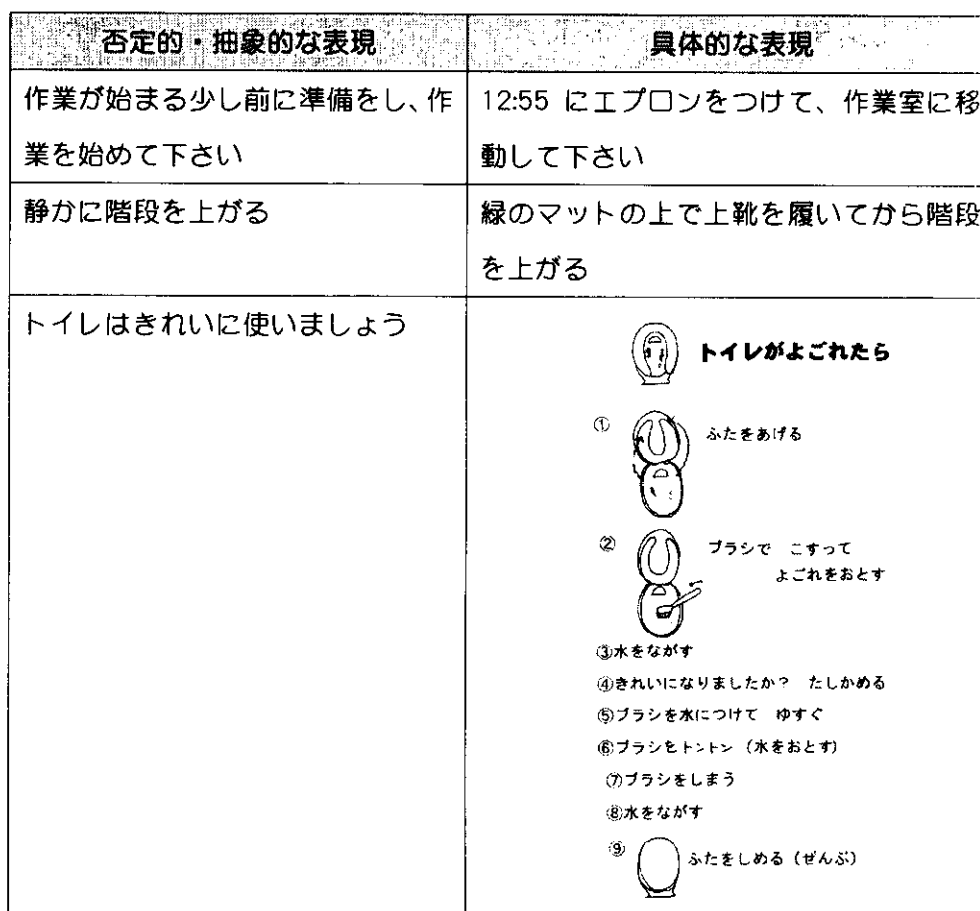 否定的・抽象的な表現
具体的な表現
作業が始まる少し前に準備をし、作
業を始めて下さい
12:55 にエプロンをつけて、作業室に移
動して下さい
静かに階段を上がる
緑のマットの上で上靴を履いてから階段
を上がる
トイレはきれいに使いましょう
トイレがよごれたら
① ふたをあげる
② ブラシで こすって
よごれをおとす
③水をながす
④きれいになりましたか? たしかめる
⑤ブラシを水につけて ゆすぐ
⑥ブラシをトントン(水をおとす)
⑦ブラシをしまう
⑧水をながす
⑨ ふたをしめる(ぜんぶ)